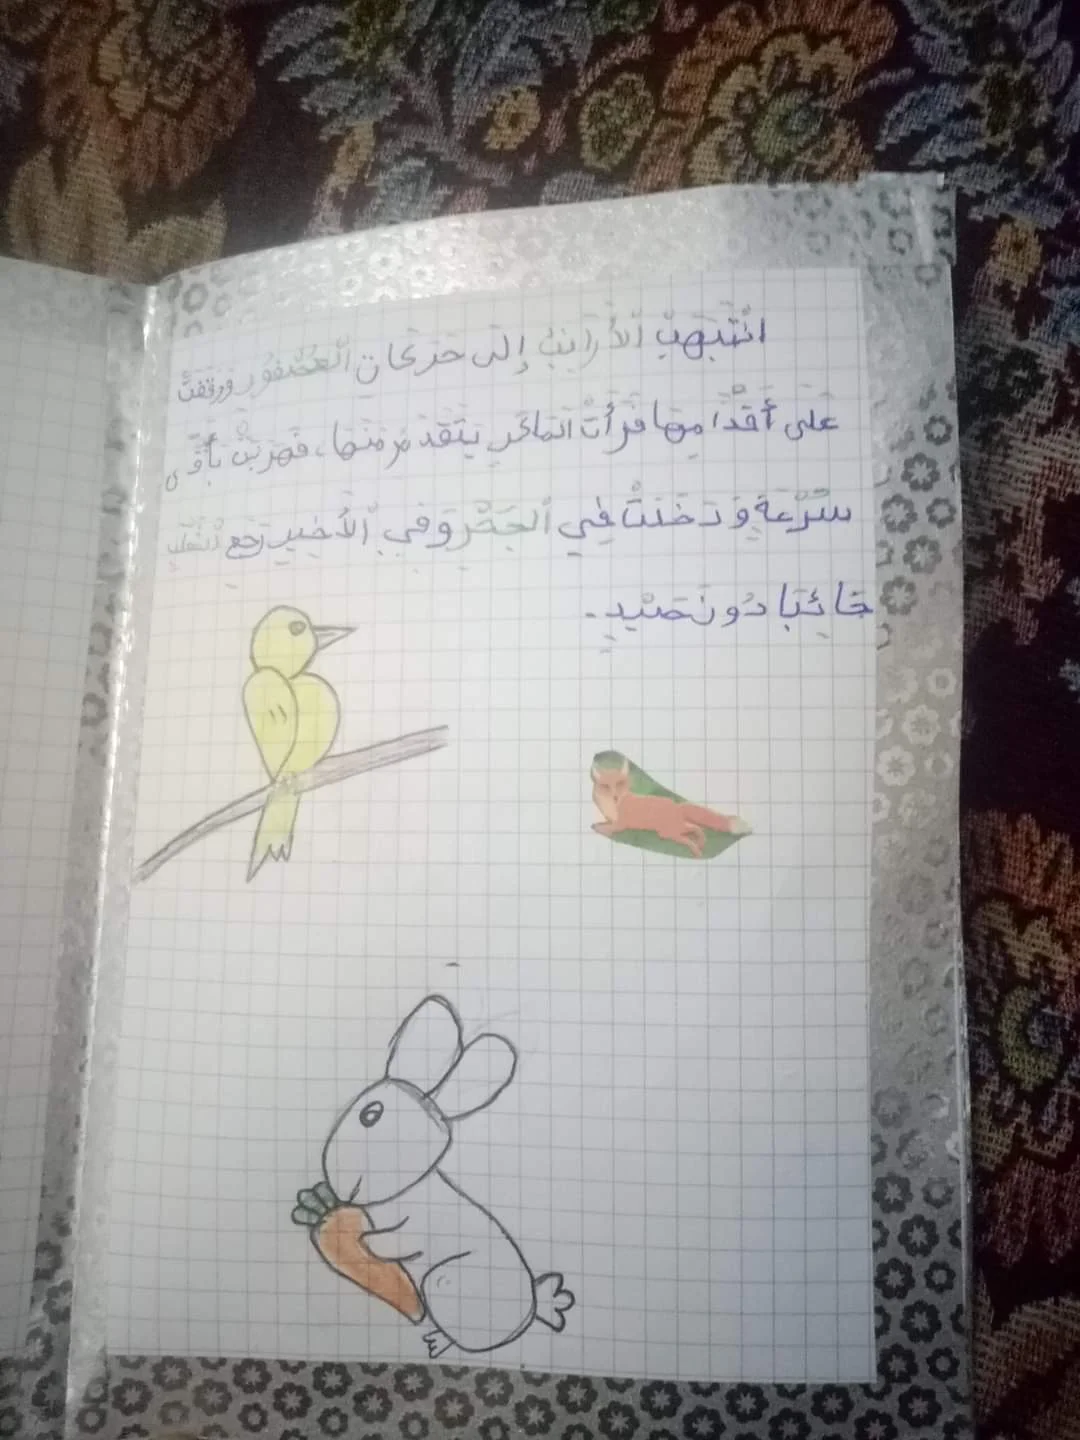 انْتَبَهَتْ الأَرَانِبُ إِلَى حَرَكَاتِ الْعُصْفُورِ وَوَقَفَتْ
عَلَى أَقْدَامِهَا فَرَأَتْ المَاكَرِ يَتَقَدَمُ مِنْهَا، فَهَرَبَتْ بِأَقْوَى
سُرْعَةٍ وَدَخَلَتْ فِي الْجَحْرِ وَفِي الْأَخِيرِ رَجَعَ الثَعْلَبِ
خَائِبًا دُونَ صَيْدٍ.